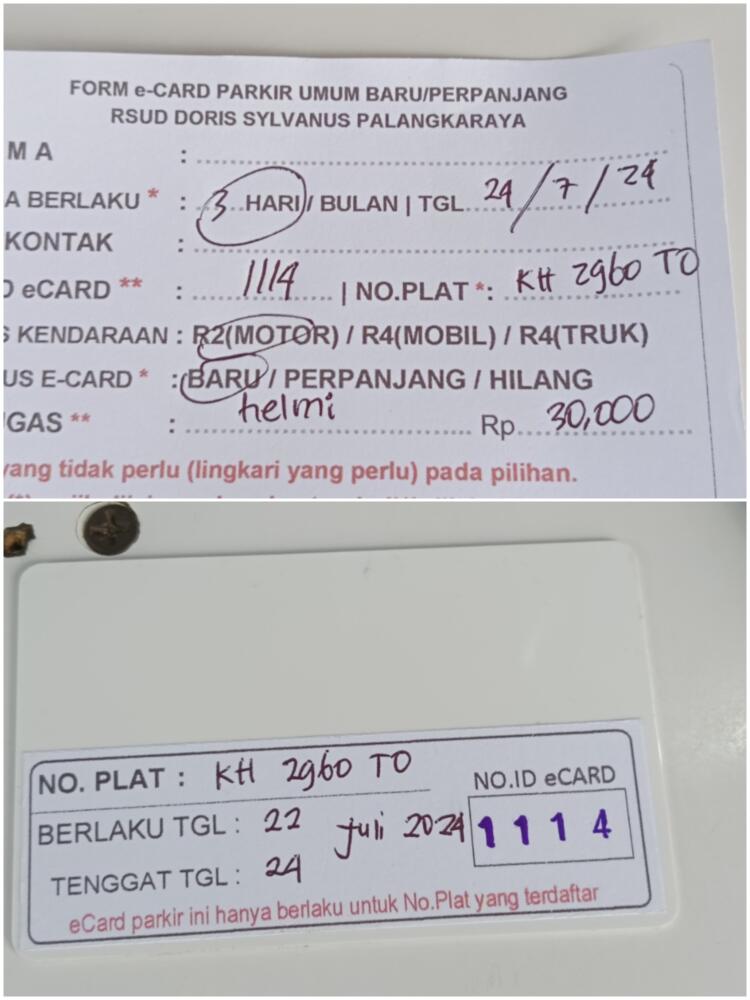 FORM e-CARD PARKIR UMUM BARU/PERPANJANG
RSUD DORIS SYLVANUS PALANGKARAYA
M A :
A BERLAKU * : 3 HARI / BULAN | TGL 24/7/24
KONTAK :
D eCARD ** : 1114 | NO.PLAT *: KH 2960 TO
S KENDARAAN : R2(MOTOR) / R4(MOBIL) / R4(TRUK)
US E-CARD * : BARU / PERPANJANG / HILANG
GAS ** : helmi Rp. 30,000
yang tidak perlu (lingkari yang perlu) pada pilihan.
NO. PLAT : KH 2960 TO
NO.ID eCARD
BERLAKU TGL : 22 Juli 2024
1114
TENGGAT TGL : 24
eCard parkir ini hanya berlaku untuk No.Plat yang terdaftar